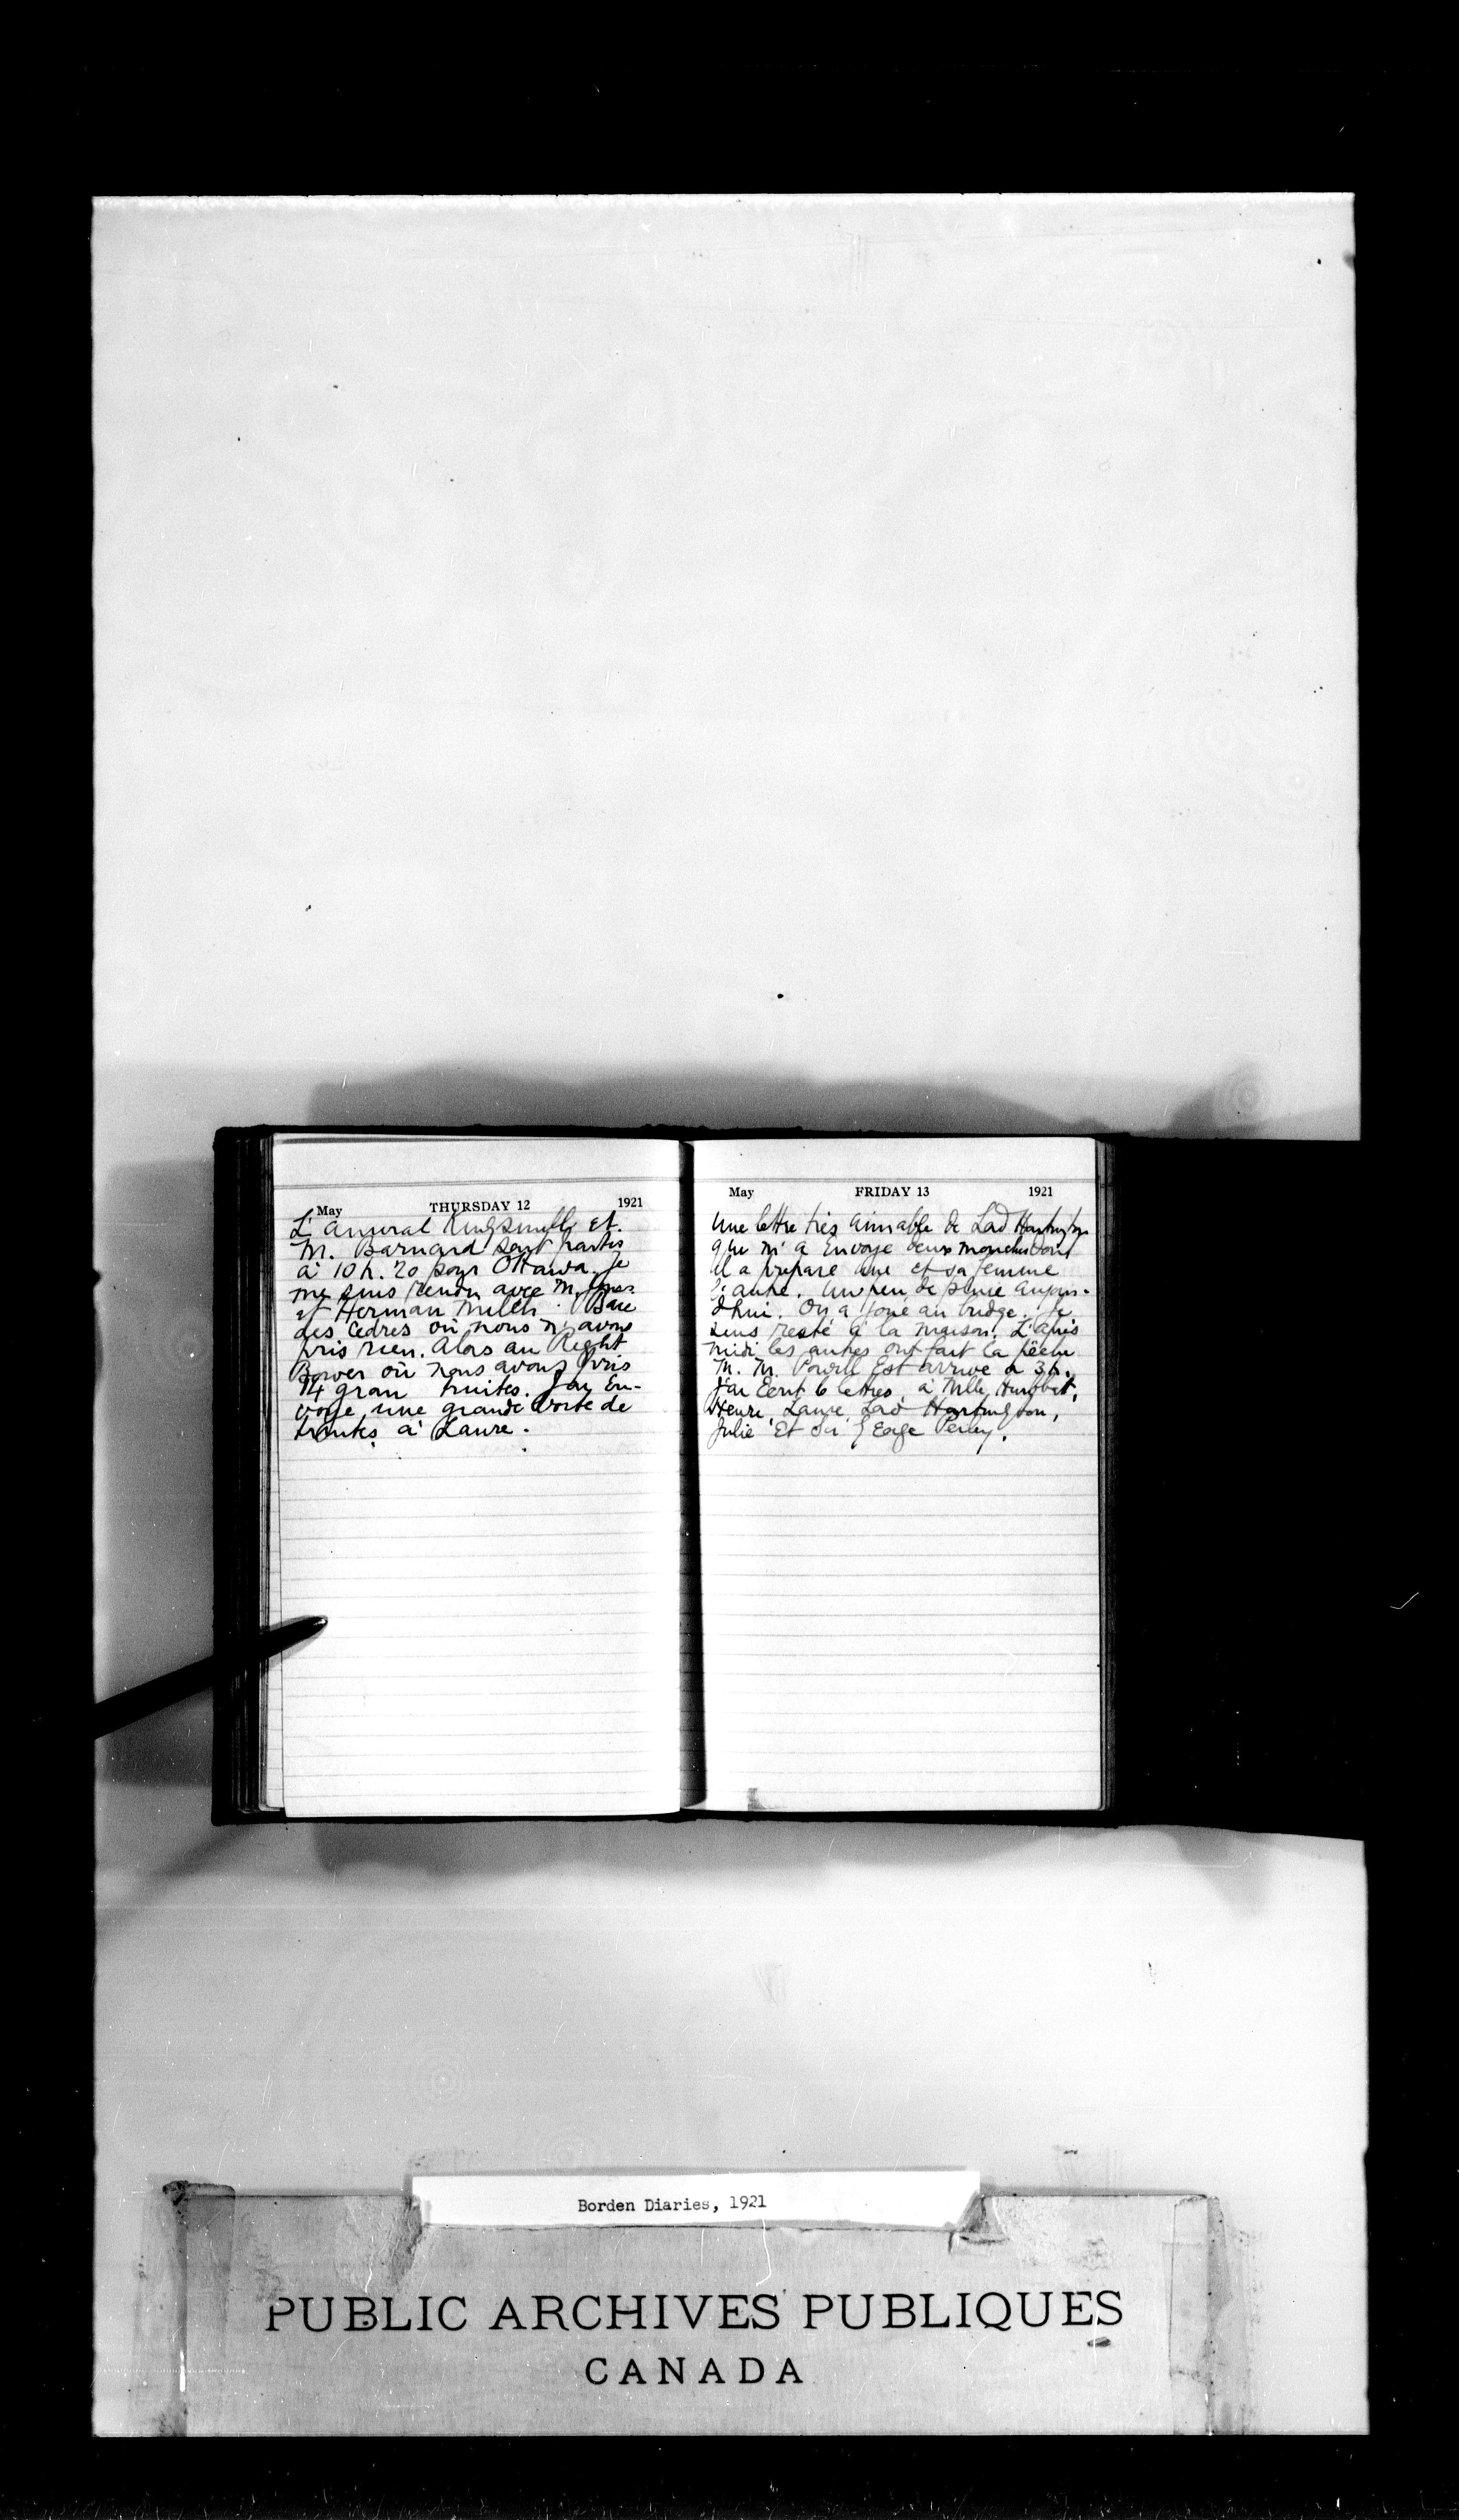 May THURSDAY 12 1921
L'amiral Kingsmill et
M. Barnard sont partis
à 10 h. 20 pour Ottawa. Je
me suis rendu avec M.
et Herman Baie
des Cedres où nous n'avons
pris rien. Alors au Right
Bower où nous avons pris
14 gran truites. J'ai en-
voyé une grande boite de
truites à Laure.
May FRIDAY 13 1921
Une lettre très aimable de Lad Hartington
qui m'a envoyé deux mouches dont
il a préparé une et sa femme
l'autre. Un peu de pluie aujour-
d'hui. On a joué au bridge. Je
suis resté à la maison. L'après
midi les autres ont fait la pêche
M. M. Powell est arrivé à 3 h.
J'ai écrit 6 lettres, à Mlle
Henri, Laure, Lad Hartington,
Julie et Sir George Perley.
Borden Diaries, 1921
PUBLIC ARCHIVES PUBLIQUES
CANADA